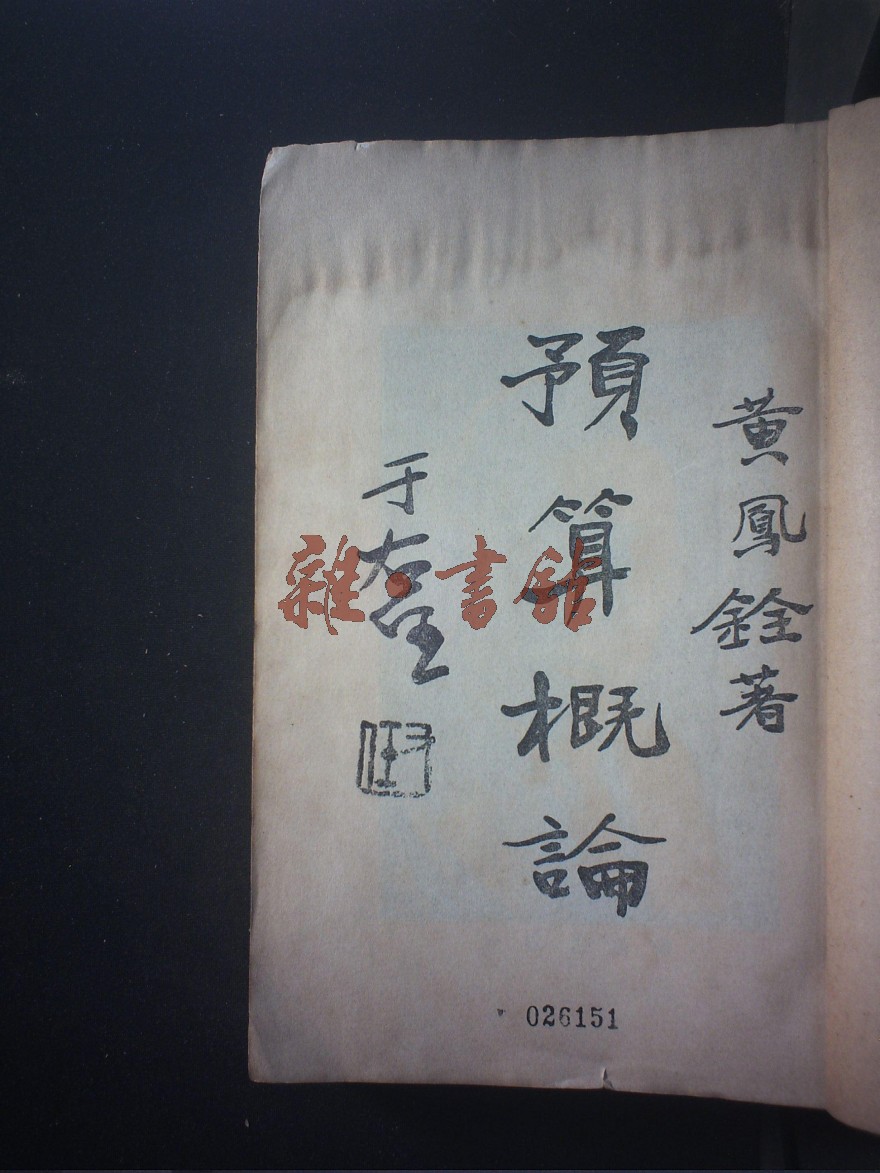 黄鳳銓著
預算概論
于右任
026151
雜·書館